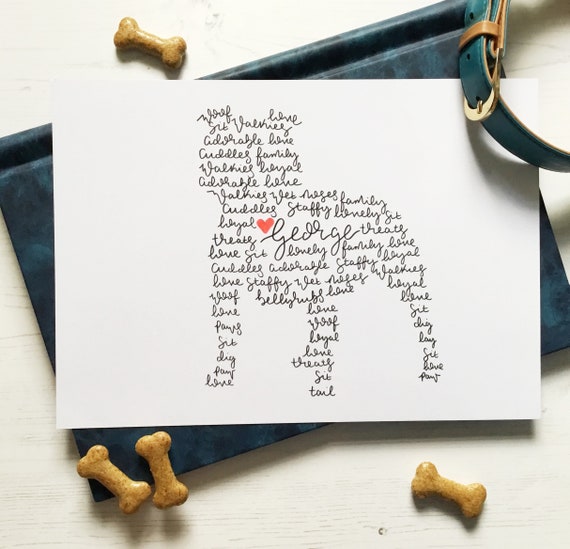 Woof love
Sit Walkies
Adorable love
Cuddles family
Walkies loyal
Adorable love
Walkies Wet Noses family
Cuddles Staffy lovely Sit
loyal George treats
treats
love Sit lovely family love
Cuddles Adorable Staffy loyal
love Staffy Wet Noses Walkies
Woof bellyrubs love loyal
love love love
Paws Woof Sit
Sit loyal dig
dig love lay
Paw treats Sit
love Sit love
tail Paw